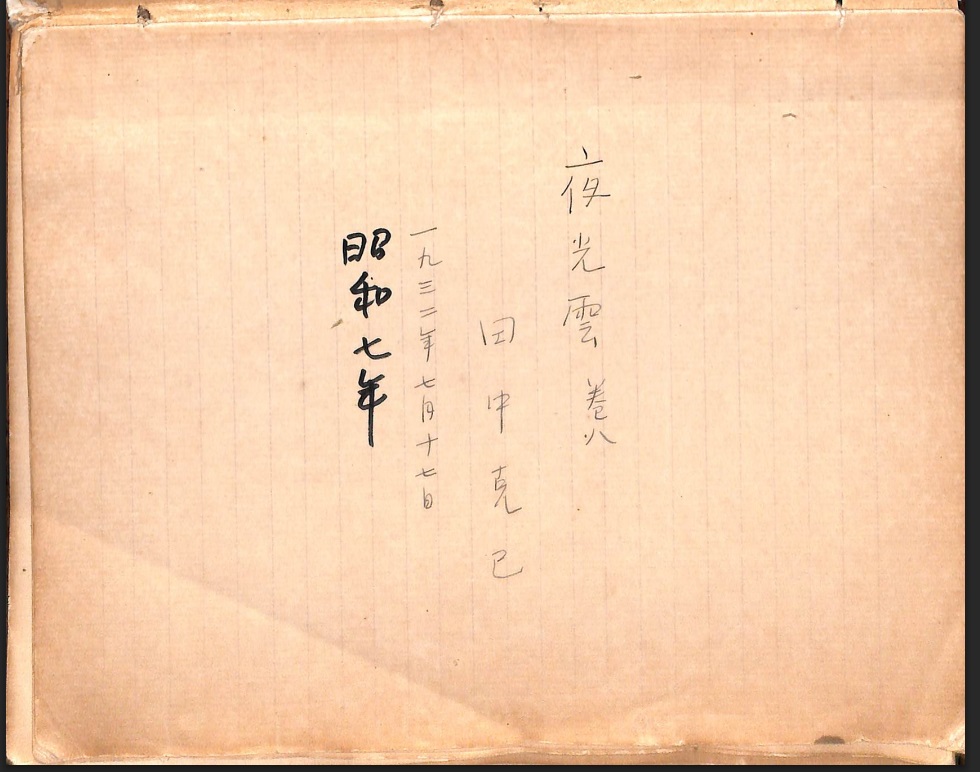 夜光雲 巻八
田中克己
一九三二年七月十七日
昭和七年